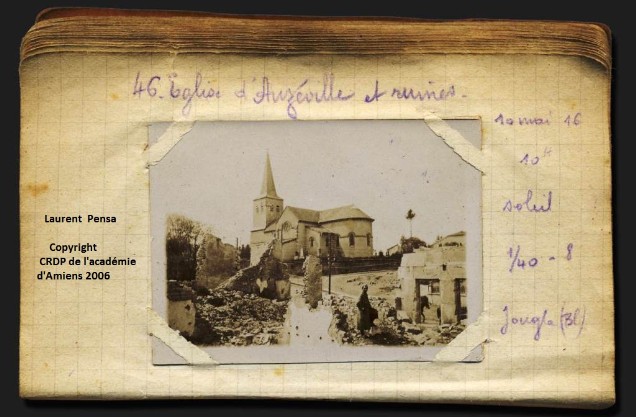 46. Eglise d'Auzéville et ruines.
10 mai 16
10ʰ
soleil
1/40 - 8
Jougla (Bl)
Laurent Pensa
Copyright
CRDP de l'académie
d'Amiens 2006